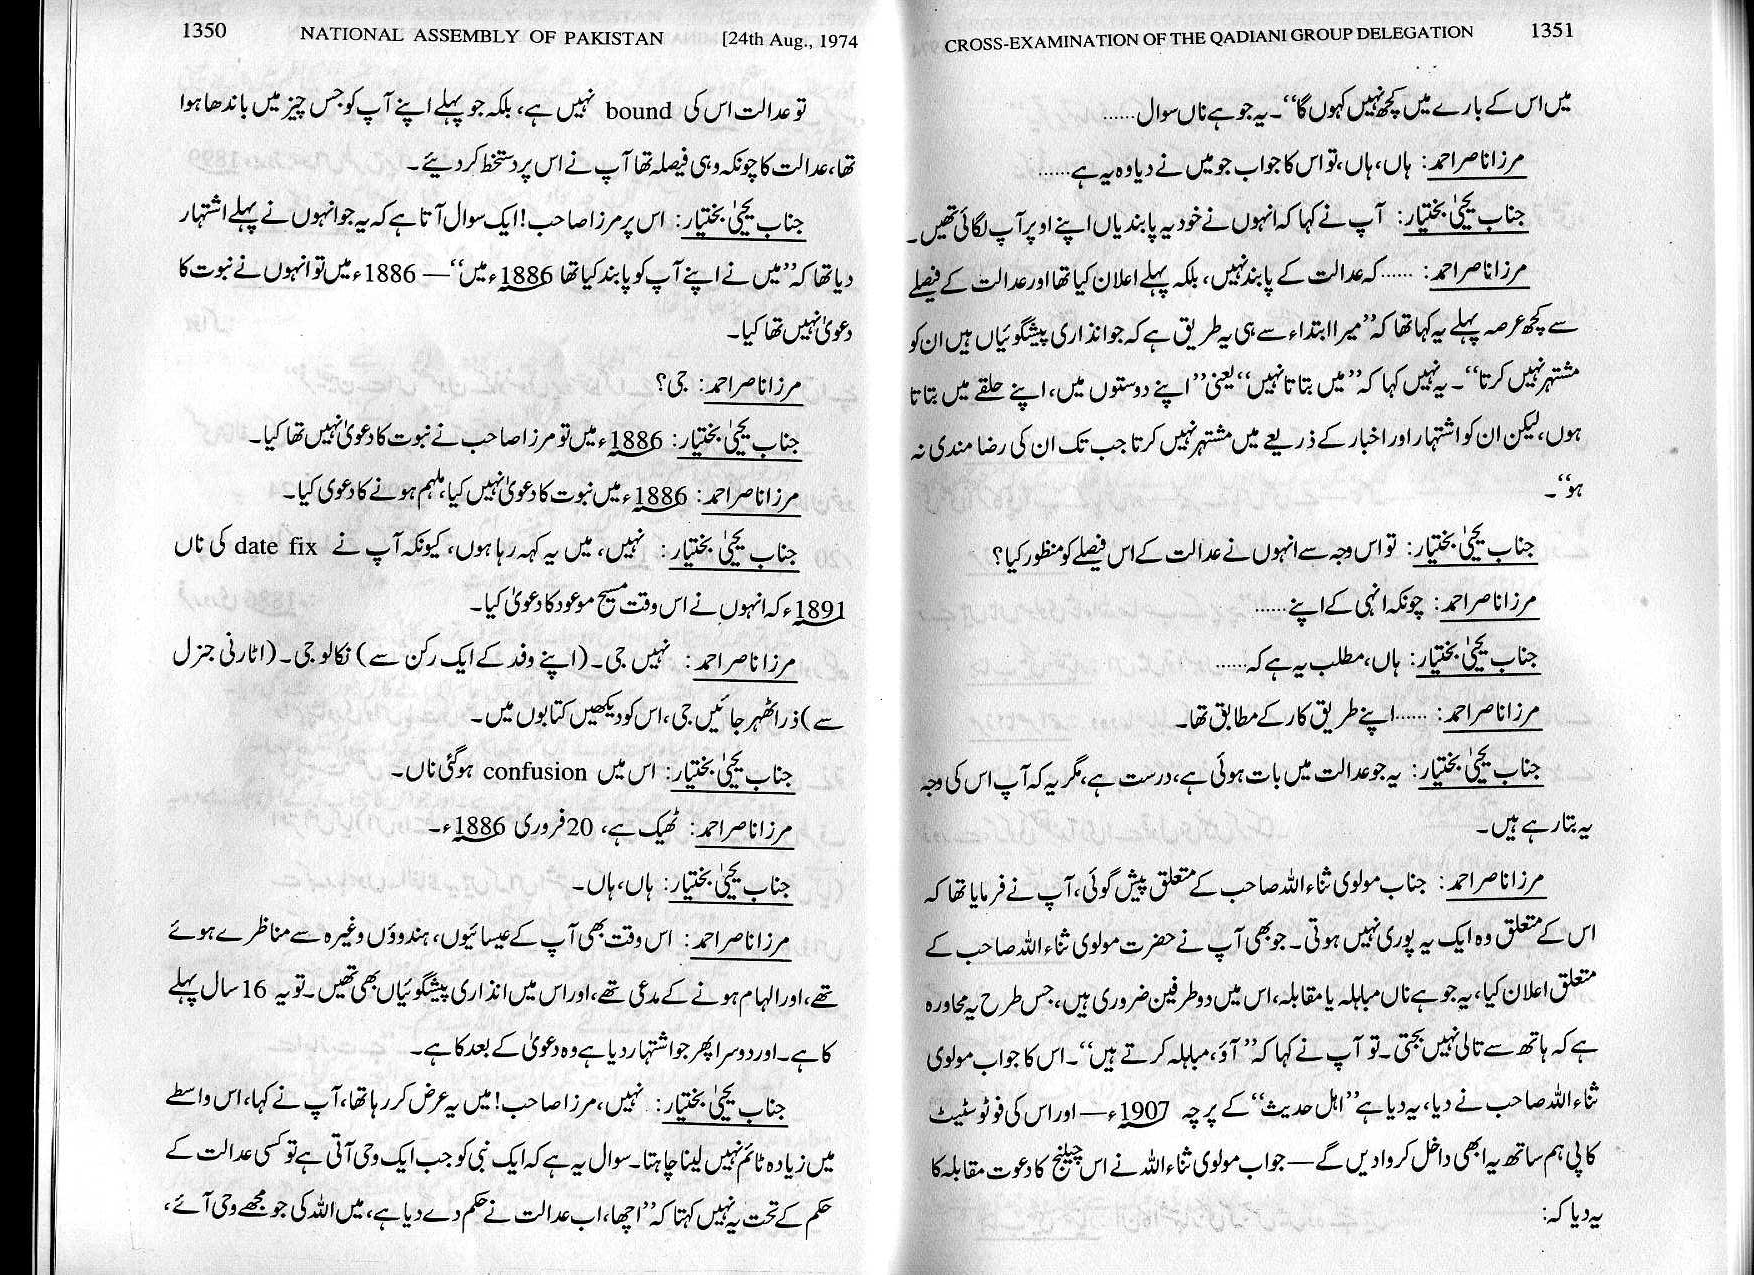 1350 NATIONAL ASSEMBLY OF PAKISTAN [24th Aug., 1974
تو عدالت اس کی bound نہیں ہے، بلکہ جو پہلے اپنے آپ کو جس چیز میں باندھا ہوا
تھا، عدالت کا چونکہ وہی فیصلہ تھا آپ نے اس پر دستخط کر دیئے۔
جناب یحییٰ بختیار: اس پر مرزا صاحب! ایک سوال آتا ہے کہ یہ جو انہوں نے پہلے اشتہار
دیا تھا کہ ’’میں نے اپنے آپ کو پابند کیا تھا 1886ء میں‘‘ — 1886ء میں تو انہوں نے نبوت کا
دعویٰ نہیں تھا کیا۔
مرزا ناصر احمد: جی؟
جناب یحییٰ بختیار: 1886ء میں تو مرزا صاحب نے نبوت کا دعویٰ نہیں تھا کیا۔
مرزا ناصر احمد: 1886ء میں نبوت کا دعویٰ نہیں کیا، ملہم ہونے کا دعوی کیا۔
جناب یحییٰ بختیار: نہیں، میں یہ کہہ رہا ہوں، کیونکہ آپ نے date fix کی ناں
1891ء کہ انہوں نے اس وقت مسیح موعود کا دعویٰ کیا۔
مرزا ناصر احمد: نہیں جی۔ (اپنے وفد کے ایک رکن سے) نکالو جی۔ (اٹارنی جنرل
سے) ذرا ٹھہر جائیں جی، اس کو دیکھیں کتابوں میں۔
جناب یحییٰ بختیار: اس میں confusion ہو گئی ناں۔
مرزا ناصر احمد: ٹھیک ہے، 20 فروری 1886ء۔
جناب یحییٰ بختیار: ہاں، ہاں۔
مرزا ناصر احمد: اس وقت بھی آپ کے عیسائیوں، ہندوؤں وغیرہ سے مناظرے ہوئے
تھے، اور الہام ہونے کے مدعی تھے، اور اس میں انذاری پیشگوئیاں بھی تھیں۔ تو یہ 16 سال پہلے
کا ہے۔ اور دوسرا پھر جو اشتہار دیا ہے وہ دعویٰ کے بعد کا ہے۔
جناب یحییٰ بختیار: نہیں، مرزا صاحب! میں یہ عرض کر رہا تھا، آپ نے کہا، اس واسطے
میں زیادہ ٹائم نہیں لینا چاہتا۔ سوال یہ ہے کہ ایک نبی کو جب ایک وحی آتی ہے تو کسی عدالت کے
حکم کے تحت یہ نہیں کہتا کہ ’’اچھا، اب عدالت نے حکم دے دیا ہے، میں اللہ کی جو مجھے وحی آئے،
CROSS-EXAMINATION OF THE QADIANI GROUP DELEGATION 1351
میں اس کے بارے میں کچھ نہیں کہوں گا‘‘۔ یہ جو ہے ناں سوال......
مرزا ناصر احمد: ہاں، ہاں، تو اس کا جواب جو میں نے دیا وہ یہ ہے......
جناب یحییٰ بختیار: آپ نے کہا کہ انہوں نے خود یہ پابندیاں اپنے اوپر آپ لگائی تھیں۔
مرزا ناصر احمد: ......کہ عدالت کے پابند نہیں، بلکہ پہلے اعلان کیا تھا اور عدالت کے فیصلے
سے کچھ عرصہ پہلے یہ کہا تھا کہ ’’میرا ابتداء سے ہی یہ طریق ہے کہ جو انذاری پیشگوئیاں ہیں ان کو
مشتہر نہیں کرتا‘‘۔ یہ نہیں کہا کہ ’’میں بتاتا نہیں‘‘ یعنی ’’اپنے دوستوں میں، اپنے حلقے میں بتاتا
ہوں، لیکن ان کو اشتہار اور اخبار کے ذریعے میں مشتہر نہیں کرتا جب تک ان کی رضا مندی نہ
ہو‘‘۔
جناب یحییٰ بختیار: تو اس وجہ سے انہوں نے عدالت کے اس فیصلے کو منظور کیا؟
مرزا ناصر احمد: چونکہ انہی کے اپنے......
جناب یحییٰ بختیار: ہاں، مطلب یہ ہے کہ......
مرزا ناصر احمد: ......اپنے طریق کار کے مطابق تھا۔
جناب یحییٰ بختیار: یہ جو عدالت میں بات ہوئی ہے، درست ہے، مگر یہ کہ آپ اس کی وجہ
یہ بتا رہے ہیں۔
مرزا ناصر احمد: جناب مولوی ثناء اللہ صاحب کے متعلق پیش گوئی، آپ نے فرمایا تھا کہ
اس کے متعلق وہ ایک یہ پوری نہیں ہوتی۔ جو بھی آپ نے حضرت مولوی ثناء اللہ صاحب کے
متعلق اعلان کیا، یہ جو ہے ناں مباہلہ یا مقابلہ، اس میں دو طرفین ضروری ہیں، جس طرح یہ محاورہ
ہے کہ ہاتھ سے تالی نہیں بجتی۔ تو آپ نے کہا کہ ’’آؤ، مباہلہ کرتے ہیں‘‘۔ اس کا جواب مولوی
ثناء اللہ صاحب نے دیا، یہ دیا ہے ’’اہل حدیث‘‘ کے پرچہ 1907ء — اور اس کی فوٹوسٹیٹ
کاپی ہم ساتھ یہ ابھی داخل کروا دیں گے — جواب مولوی ثناء اللہ نے اس چیلنج کا دعوت مقابلہ کا
یہ دیا کہ: